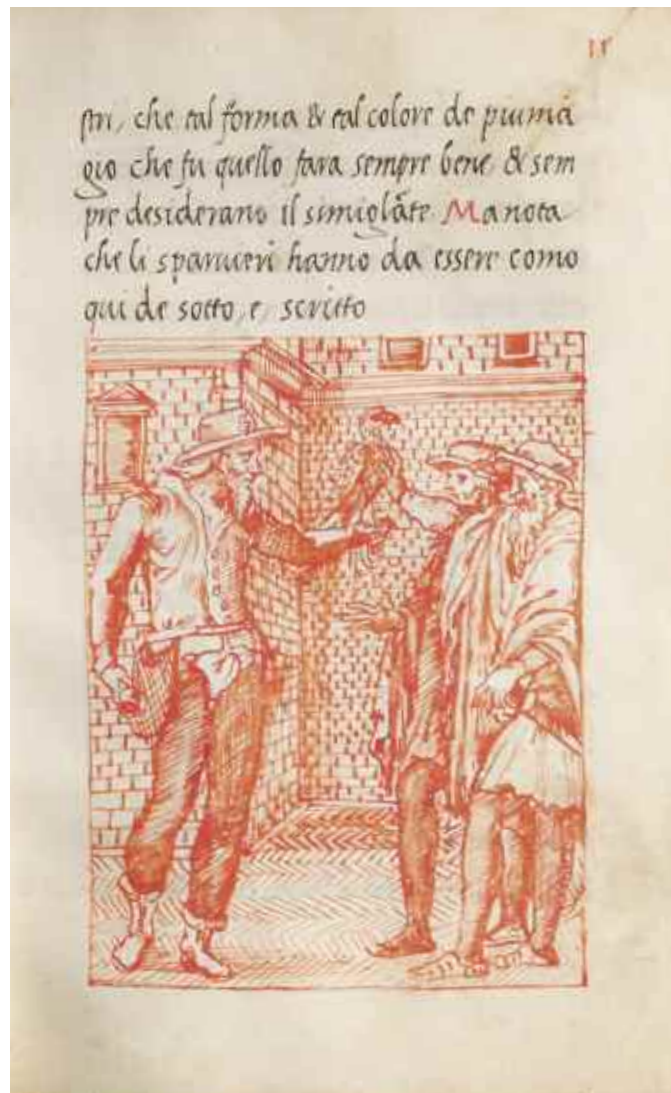 11
stri, che tal forma & tal colore de piuma
gio che fu quello fara sempre bene, & sem
pre desiderano il simiglāte Ma nota
che li sparuieri hanno da essere como
qui de sotto, e, scritto